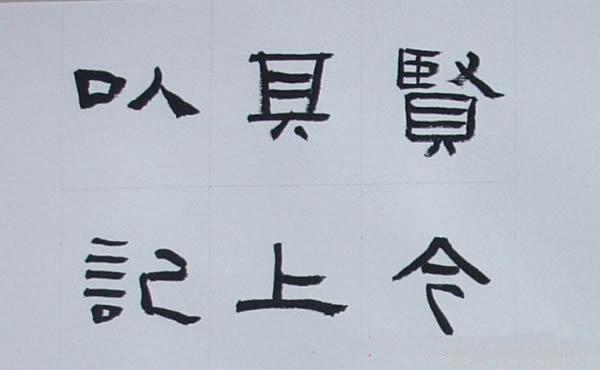 賢令
具上
以記